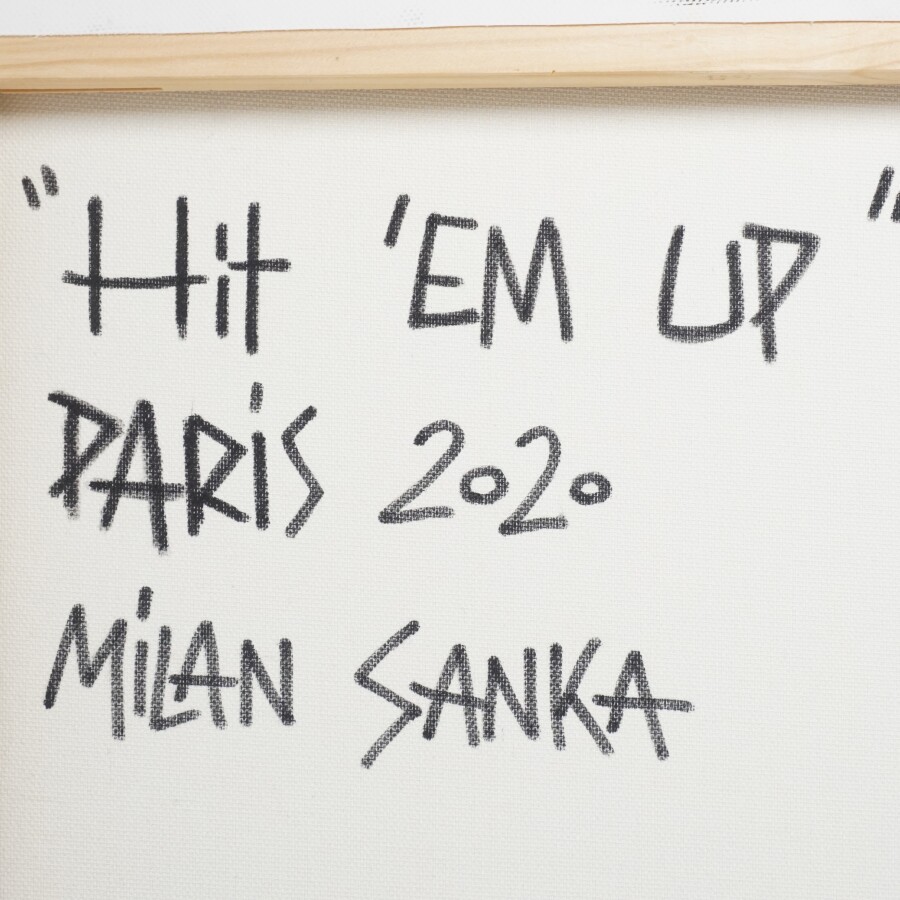 "Hit 'EM UP"
PARiS 2020
MiLAN SANKA